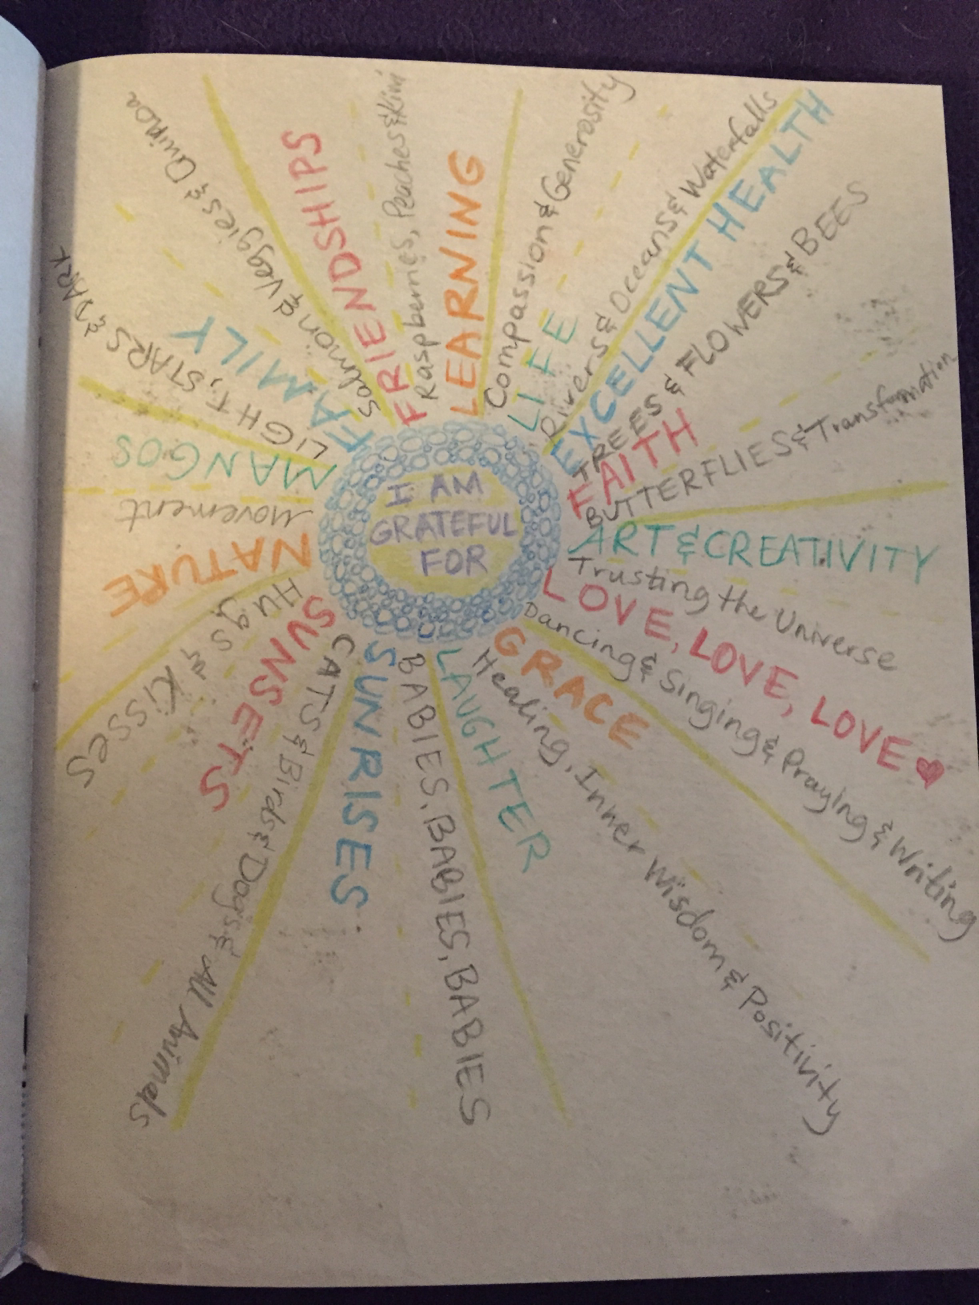 I AM
GRATEFUL
FOR
FRIENDSHIPS
Raspberries, Peaches & Kiwi
LEARNING
Compassion & Generosity
LIFE
Rivers & Oceans & Waterfalls
EXCELLENT HEALTH
TREES & FLOWERS & BEES
FAITH
BUTTERFLIES & Transformation
ART & CREATIVITY
Trusting the Universe
LOVE, LOVE, LOVE
Dancing & Singing & Praying & Writing
GRACE
Healing, Inner Wisdom & Positivity
LAUGHTER
BABIES, BABIES, BABIES
SUNRISES
CATS & Birds & Dogs & All Animals
SUNSETS
Hugs & Kisses
NATURE
Movement
MANGOS
LIGHT, STARS & DARK
FAMILY
Salmon & Veggies & Quinoa